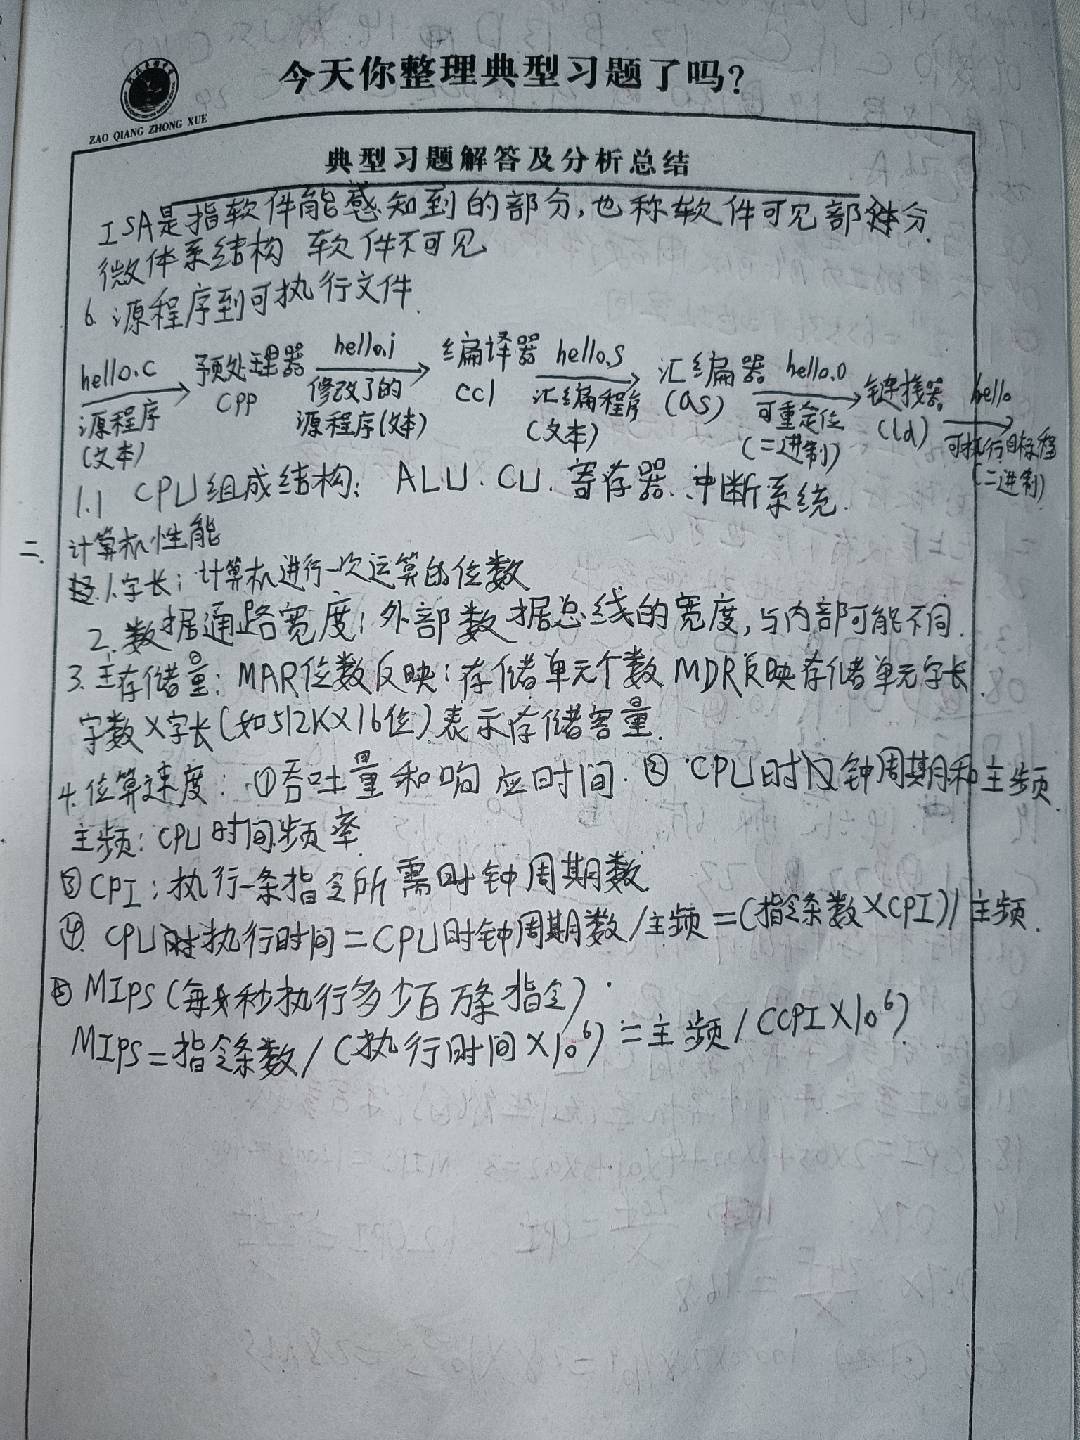 今天你整理典型习题了吗?
ZAO QIANG ZHONG XUE
典型习题解答及分析总结
ISA是指软件能感知到的部分,也称软件可见部分.
微体系结构 软件不可见
6. 源程序到可执行文件.
hello.c 预处理器 hello.i 编译器 hello.s 汇编器 hello.o 链接器 hello
源程序 CPP 修改了的 ccl 汇编程序 (as) 可重定位 (ld) 可执行目标程
(文本) 源程序(文本) (文本) (二进制) (二进制)
1.1 CPU组成结构: ALU. CU. 寄存器. 中断系统.
二. 计算机性能
1.字长: 计算机进行一次运算的位数
2. 数据通路宽度: 外部数据总线的宽度,与内部可能不同.
3. 主存储量: MAR位数反映: 存储单元个数 MDR反映存储单元字长.
字数×字长(如512K×16位)表示存储容量.
4. 位算速度: ①吞吐量和响应时间. ② CPU时钟周期和主频.
主频: CPU时间频率.
③CPI: 执行一条指令所需时钟周期数.
④. CPU执行时间=CPU时钟周期数/主频=(指令条数×CPI)/主频.
⑤ MIPS(每秒执行多少百万条指令).
MIPS=指令条数/(执行时间×10⁶)=主频/(CPI×10⁶).